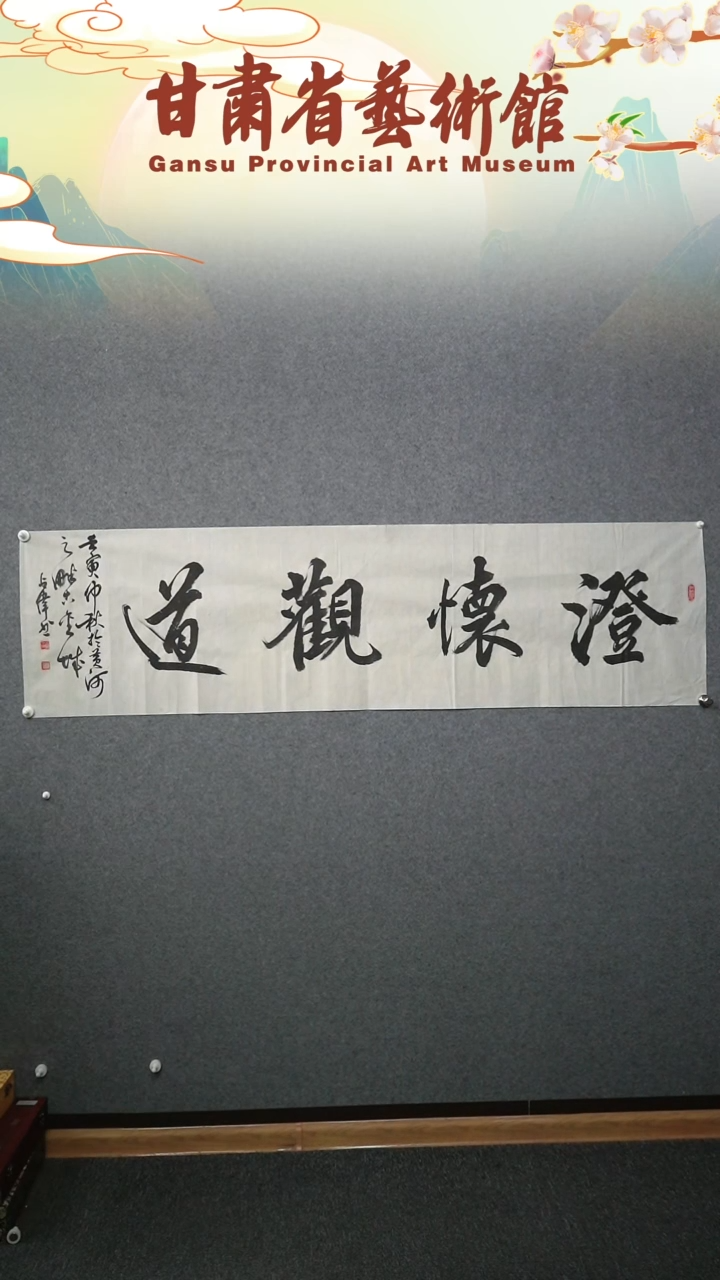 甘肅省藝術館
Gansu Provincial Art Museum
澄懷觀道
壬寅仲秋於黃河
之畔古金城